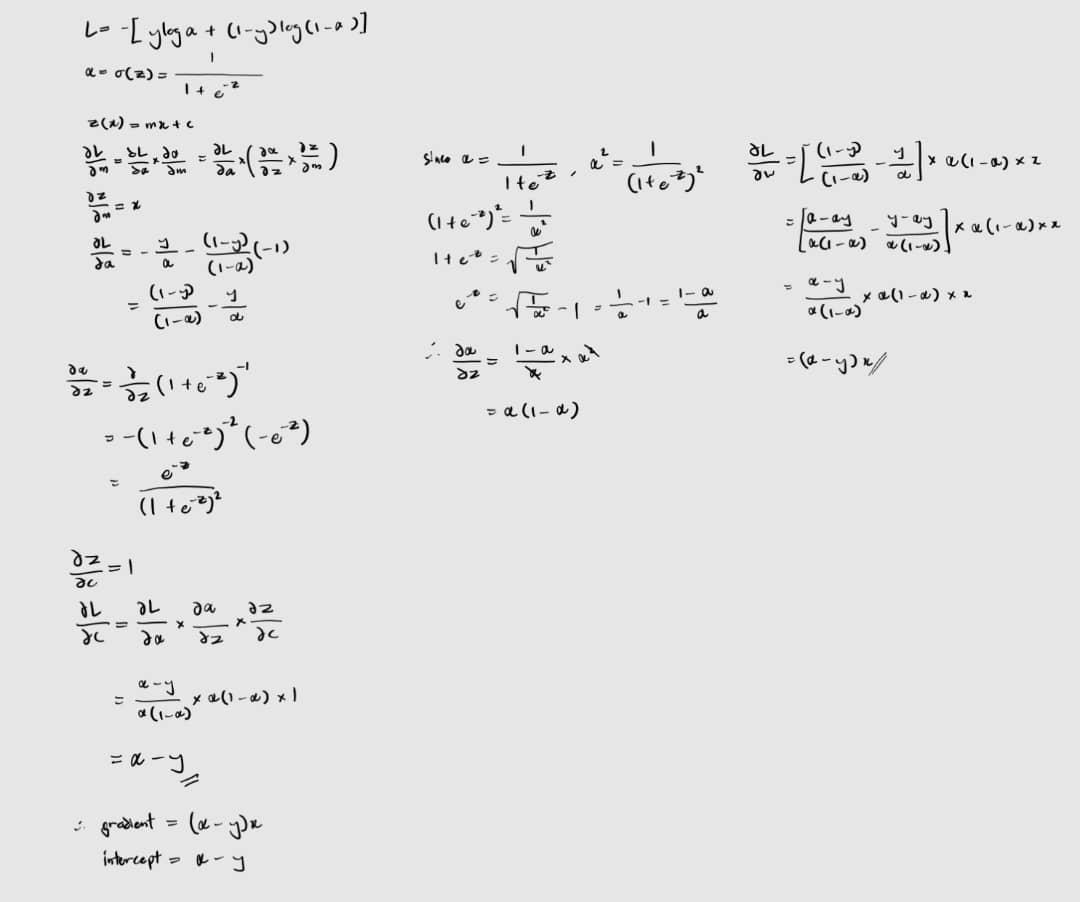 L = -[ylog a + (1-y)log(1-a)]
a = σ(z) = 1/(1 + e^{-z})
z(x) = mx + c
∂L/∂m = ∂L/∂a × ∂a/∂m = ∂L/∂a × (∂a/∂z × ∂z/∂m)
∂z/∂m = x
∂L/∂a = - y/a - (1-y)/(1-a) (-1)
= (1-y)/(1-a) - y/a
∂a/∂z = ∂/∂z (1 + e^{-z})^{-1}
= -(1 + e^{-z})^{-2} (-e^{-z})
= e^{-z}/(1 + e^{-z})^2
∂z/∂c = 1
∂L/∂c = ∂L/∂a × ∂a/∂z × ∂z/∂c
= (a-y)/(a(1-a)) × a(1-a) × 1
= a - y
∴ gradient = (a-y)x
intercept = a - y
since a = 1/(1+e^{-z}), a^2 = 1/(1+e^{-z})^2
(1+e^{-z})^2 = 1/a^2
1+e^{-z} = √(1/a^2)
e^{-z} = √(1/a^2) - 1 = 1/a - 1 = (1-a)/a
∴ ∂a/∂z = (1-a)/a × a^2
= a(1-a)
∂L/∂w = [(1-y)/(1-a) - y/a] × a(1-a) × x
= [(a-ay)/(a(1-a)) - (y-ay)/(a(1-a))] × a(1-a) × x
= (a-y)/(a(1-a)) × a(1-a) × x
= (a-y)x //